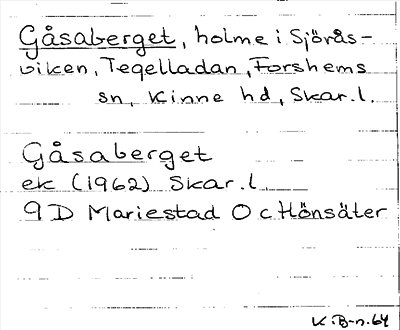 Gåsaberget, holme i Sjörås-
viken, Tegelladan, Forshems
sn, Kinne hd, Skar.l.
Gåsaberget
ek (1962) Skar.l
9D Mariestad O c Hönsäter
K.B-n.64